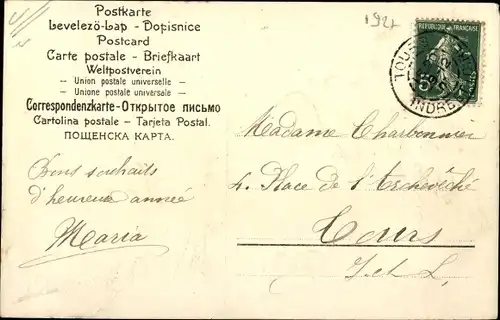 Postkarte
Levelező-Lap - Dopisnice
Postcard
Carte postale - Briefkaart
Weltpostverein
- Union postale universelle -
- Unione postale universale -
Correspondenzkarte-Открытое письмо
Cartolina postale - Tarjeta Postal.
ПОЩЕНСКА КАРТА.
Bons souhaits
d'heureuse année
Maria
192
REPUBLIQUE FRANÇAISE
5
TOURS
INDRE
Madame Charbonnier
4. Place de l'Archevêché
Tours
I. et L.